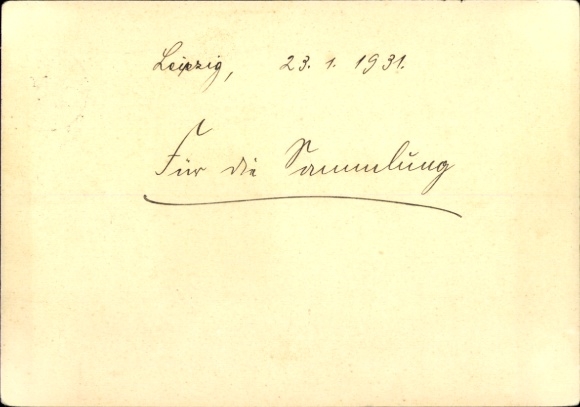 Leipzig, 23. 1. 1931.
Für die Sammlung